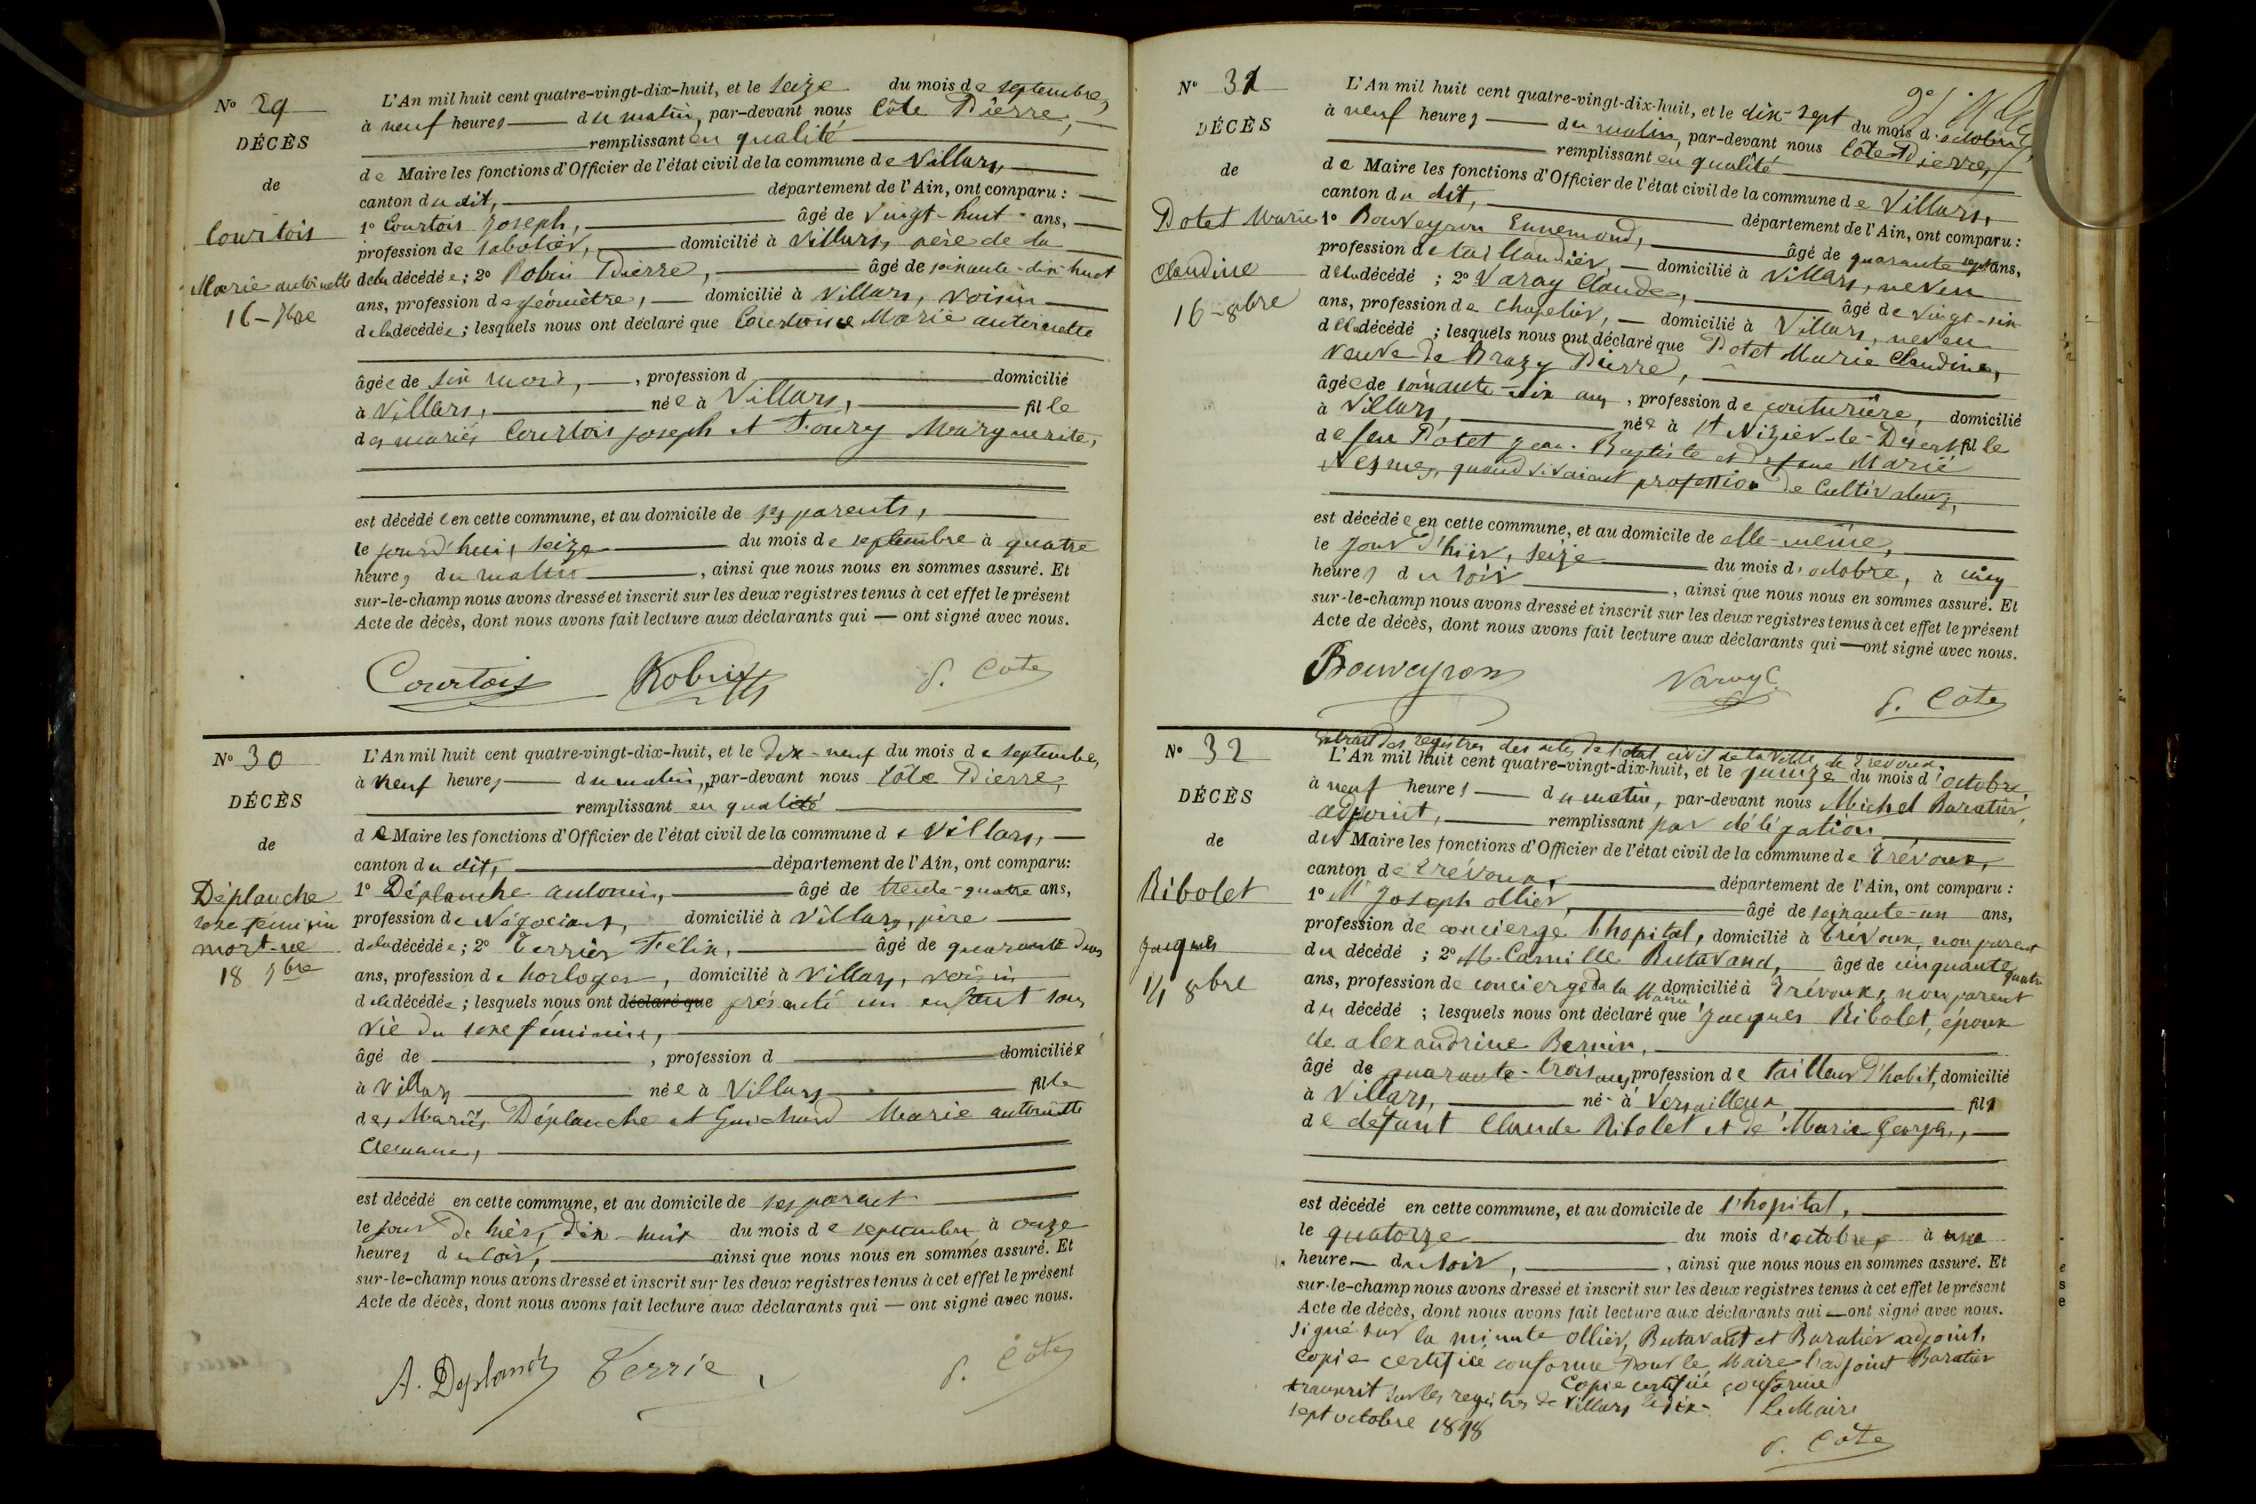 Nº 29
DÉCÈS
de
Courtois
Marie antoinette
16 - 7bre
L'An mil huit cent quatre-vingt-dix-huit, et le seize du mois de septembre,
à neuf heures du matin, par-devant nous Côte Pierre,
remplissant en qualité
de Maire les fonctions d'Officier de l'état civil de la commune de Villars,
canton du dit, département de l'Ain, ont comparu :
1º Courtois Joseph, âgé de vingt-huit ans,
profession de sabotier, domicilié à Villars, père de la
de la décédée; 2º Robin Pierre, âgé de soixante-dix-huit
ans, profession de géomètre, domicilié à Villars, voisin
de la décédée; lesquels nous ont déclaré que Courtois Marie antoinette
âgée de six mois, , profession d domicilié
à Villars, née à Villars, fille
des mariés Courtois Joseph et Foury Marguerite,
est décédée en cette commune, et au domicile de ses parents,
le jourd'hui, seize du mois de septembre à quatre
heures du matin , ainsi que nous nous en sommes assuré. Et
sur-le-champ nous avons dressé et inscrit sur les deux registres tenus à cet effet le présent
Acte de décès, dont nous avons fait lecture aux déclarants qui — ont signé avec nous.
Courtois Robin P. Côte
Nº 30
DÉCÈS
de
Déplanche
sexe féminin
mort-né
18 7bre
L'An mil huit cent quatre-vingt-dix-huit, et le dix-neuf du mois de septembre,
à neuf heures du matin, par-devant nous Côte Pierre,
remplissant en qualité
de Maire les fonctions d'Officier de l'état civil de la commune de Villars,
canton du dit, département de l'Ain, ont comparu:
1º Déplanche antonin, âgé de trente-quatre ans,
profession de Négociant, domicilié à Villars, père
de la décédée; 2º Terrier Félix, âgé de quarante deux
ans, profession de horloger, domicilié à Villars, voisin
de la décédée; lesquels nous ont déclaré que présenté un enfant sans
vie du sexe féminin,
âgé de , profession d domiciliée
à Villars née à Villars fille
des Mariés Déplanche et Guichard Marie antoinette
est décédé en cette commune, et au domicile de ses parent
le jour de hier, dix-huit du mois de septembre à onze
heures du soir, ainsi que nous nous en sommes assuré. Et
sur-le-champ nous avons dressé et inscrit sur les deux registres tenus à cet effet le présent
Acte de décès, dont nous avons fait lecture aux déclarants qui — ont signé avec nous.
A. Deplanch Terrie P. Côte
Nº 31
DÉCÈS
de
Potet Marie
Claudine
16 - 8bre
L'An mil huit cent quatre-vingt-dix-huit, et le dix-sept du mois d'octobre,
à neuf heures du matin, par-devant nous Côte Pierre,
remplissant en qualité
de Maire les fonctions d'Officier de l'état civil de la commune de Villars,
canton du dit, département de l'Ain, ont comparu :
1º Bouveyron Ennemond, âgé de quarante sept ans,
profession de taillandier, domicilié à Villars, neveu
de la décédé ; 2º Varay Claude, âgé de vingt-six
ans, profession de chapelier, domicilié à Villars, neveu
de la décédé ; lesquels nous ont déclaré que Potet Marie Claudine,
veuve de Brazy Pierre,
âgée de soixante-dix ans, profession de couturière, domicilié
à Villars, née à St Nizier-le-Désert fille
de feu Potet Jean-Baptiste et de feue Marie
Nesmes, quand vivaient profession de Cultivateurs,
est décédée en cette commune, et au domicile de elle-même,
le jour d'hier, seize du mois d'octobre, à cinq
heures du soir , ainsi que nous nous en sommes assuré. Et
sur-le-champ nous avons dressé et inscrit sur les deux registres tenus à cet effet le présent
Acte de décès, dont nous avons fait lecture aux déclarants qui — ont signé avec nous.
Bouveyron Varay C. P. Côte
Nº 32
DÉCÈS
de
Ribolet
Jacques
14 8bre
Extrait des registres des actes de l'état civil de la Ville de Trévoux.
L'An mil huit cent quatre-vingt-dix-huit, et le quinze du mois d'octobre,
à neuf heures du matin, par-devant nous Michel Baratier,
adjoint, remplissant par délégation
du Maire les fonctions d'Officier de l'état civil de la commune de Trévoux,
canton de Trévoux, département de l'Ain, ont comparu :
1º M Joseph Ollier, âgé de soixante-un ans,
profession de concierge l'hopital, domicilié à Trévoux, non parent
du décédé ; 2º M. Camille Butavand, âgé de cinquante quatre
ans, profession de concierge de la Mairie domicilié à Trévoux, non parent
du décédé ; lesquels nous ont déclaré que Jacques Ribolet, époux
de alexandrine Bernin,
âgé de quarante-trois ans, profession de tailleur d'habit, domicilié
à Villars, né à Versailleux fils
de défunt Claude Ribolet et de Marie Georges,
est décédé en cette commune, et au domicile de l'hopital,
le quatorze du mois d'octobre, à une
heure du soir, , ainsi que nous nous en sommes assuré. Et
sur-le-champ nous avons dressé et inscrit sur les deux registres tenus à cet effet le présent
Acte de décès, dont nous avons fait lecture aux déclarants qui — ont signé avec nous.
Signé sur la minute Ollier, Butavant et Baratier adjoint.
Copie certifiée conforme Pour le Maire l'adjoint Baratier
transcrit sur les registres de Villars le dix-
sept octobre 1898
Copie certifiée conforme
Le Maire
P. Côte